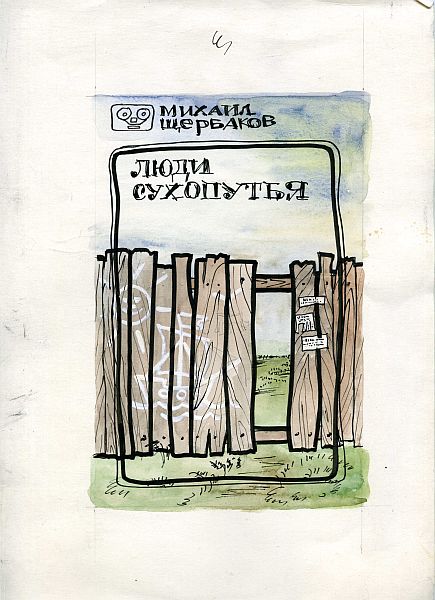 МИХАИЛ
ЩЕРБАКОВ
ЛЮДИ
СУХОПУТЬЯ